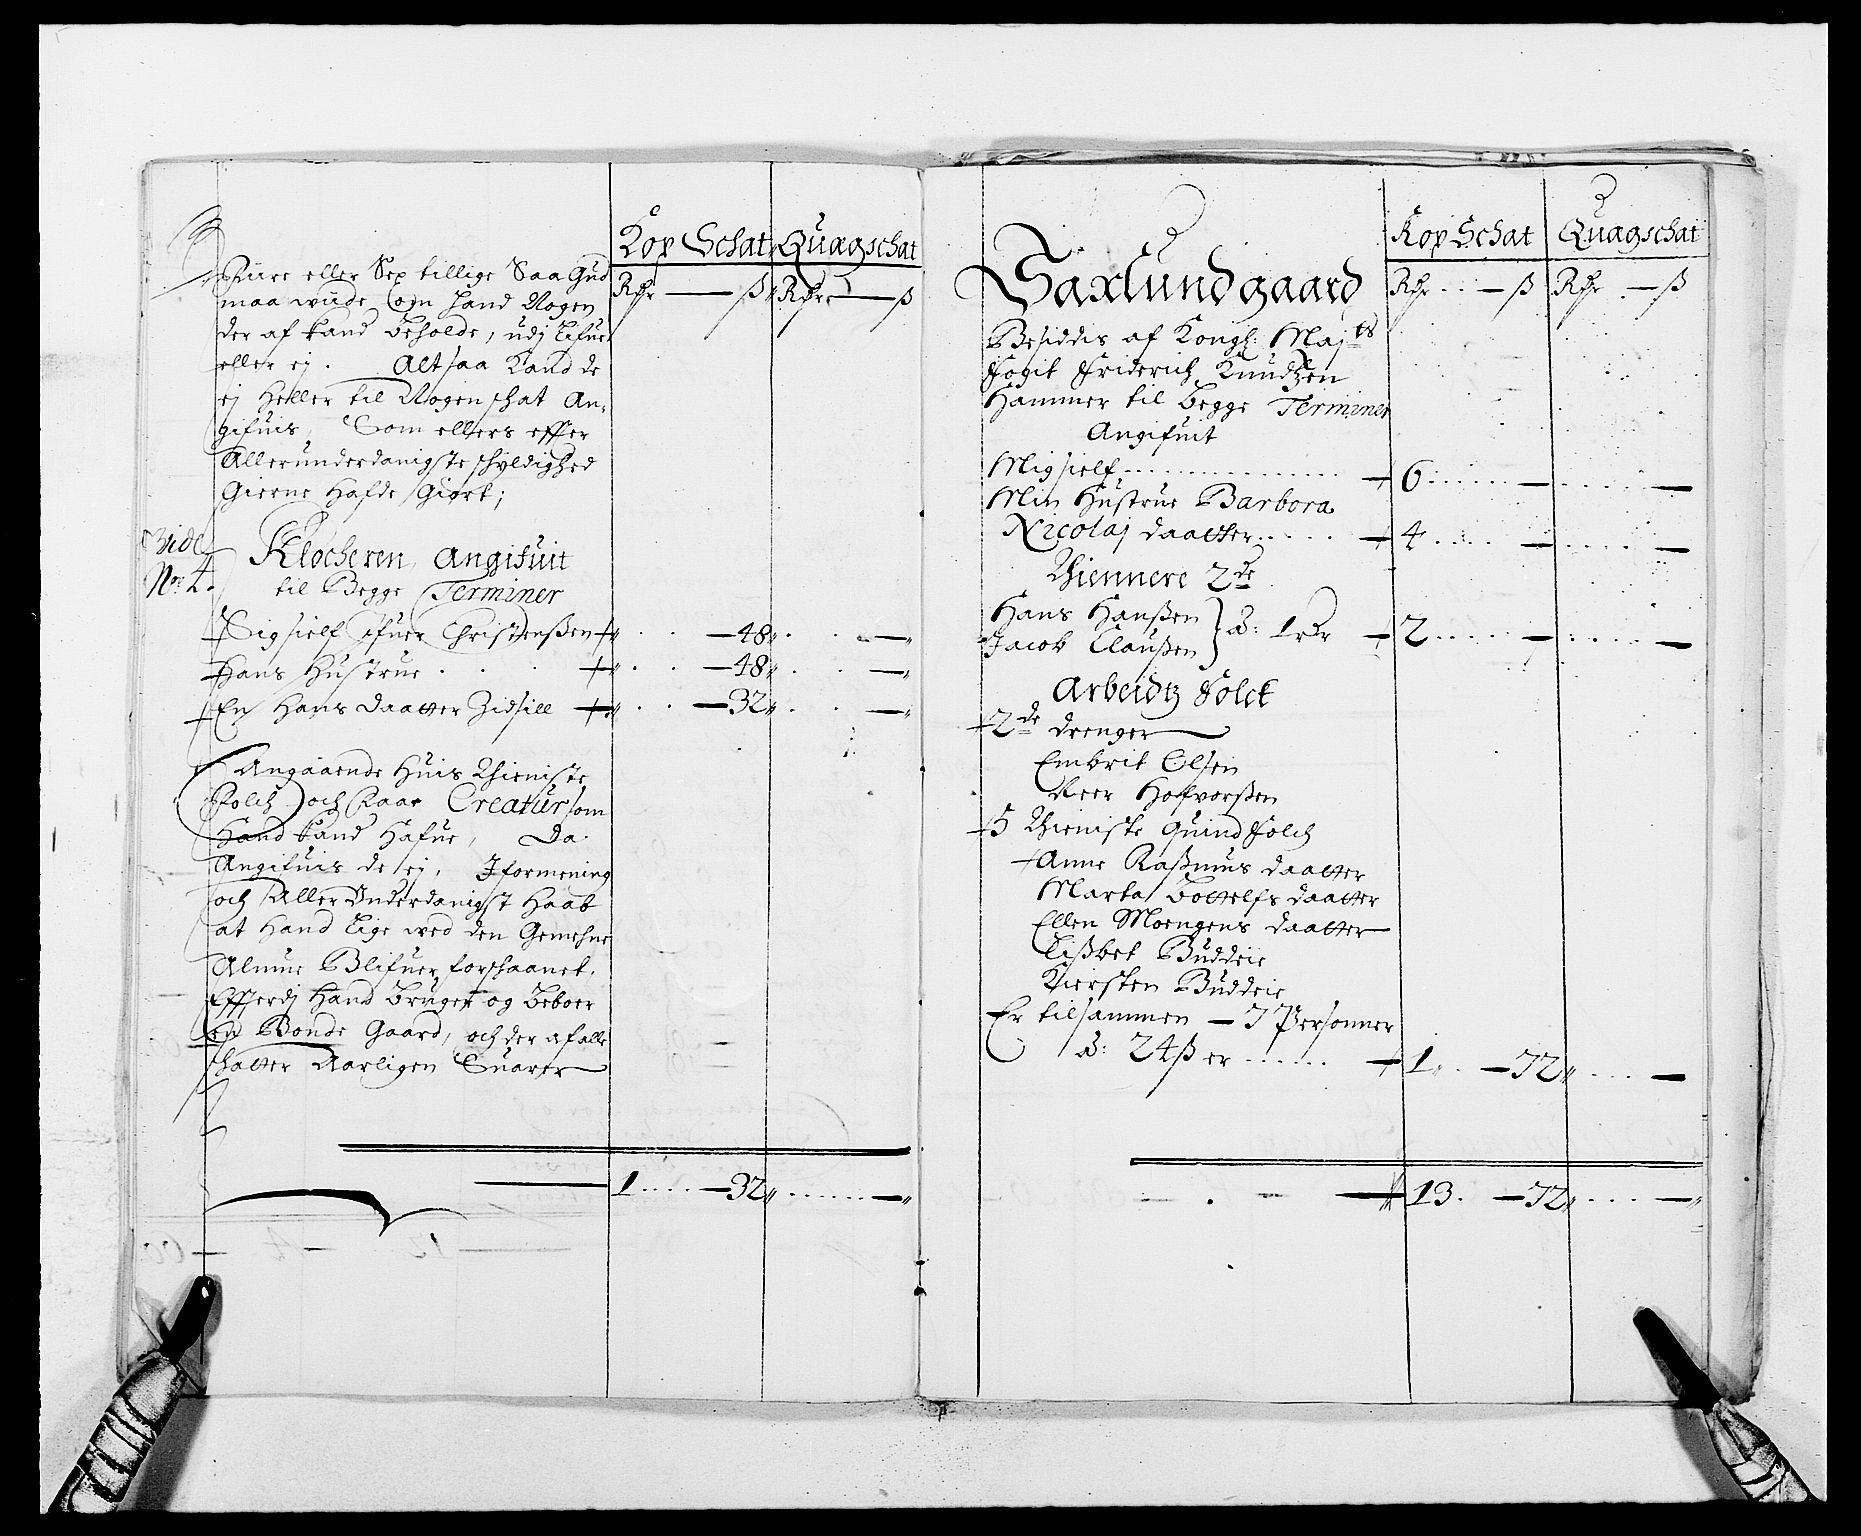 Kop Schat Quægschat
Rdr — ß Rdr — ß
Fiire eller Sex tillige Saa Gud
maa wiide, om hand Nogen
der af kand beholde, udj Lifue
eller ej. Altsaa Kand de
ej Heller til Nogen schat An-
gifuis, Som ellers effter
Allerunderdanigste schyldighed
Gierne Hafde Giort;
Vide
No: 4.
Klocheren, Angifuit
til Begge Terminer
Sigsielf Ifuer Christenßen — 48 —
Hans Hustrue — 48 —
En Hans daatter Zidsill — 32 —
Angaaende Huis Thieniste
Folch och Creatur som
Hand kand Hafue, Da
Angifuis de ej, Iformening
och Aller Underdanigst Haab
at Hand Lige wed den Gemehne
Almue Blifuer forschaanet,
Effterdj Hand Bruger og Beboer
En Bonde Gaard, och der af alle
schatter Aarligen Suarer
1 — 32 —
Kop Schat Quægschat
Saxlund gaard
Rdr — ß Rdr — ß
Besiddis af Kongl: Majts
Fogit Friderich Knudtzen
Hammer til begge Terminer
Angifuit
Migsielf 6 — —
Min Hustrue Barbora
Nicolaj daatter 4 — —
Thiennere 2de
Hans Hanßen
Jacob Claußen } à: 1 rdr 2 — —
Arbeidtz Folck
2de drenger
Embrit Olsen
Peer Hofvorßen
5 Thieniste Quindfolch
Anne Raßmus daatter
Marta Bottelfs daatter
Ellen Moengens daatter
Lißbet Buddeie
Kiersten Buddeie
Er tilsammen — 7 Personner
à: 24 ß er 1 — 72 —
13 — 72 —